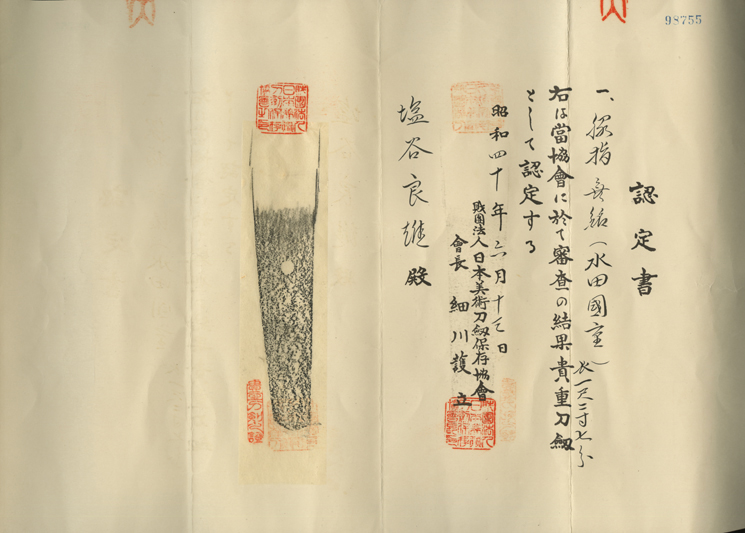 98755
認定書
一、脇指 無銘(水田國重)
長一尺二寸七分
右は當協會に於て審査の結果貴重刀劔
として認定する
昭和四十年六月十三日
財団法人日本美術刀劔保存協會
會長 細川護立
塩谷良雄殿